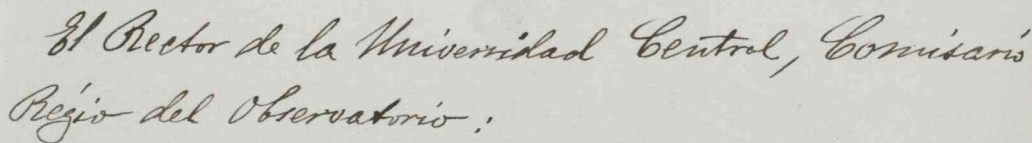 El Rector de la Universidad Central, Comisario
Régio del Observatorio: